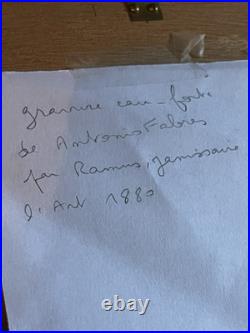 gravure eau-forte
de Antonio Fabres
par Ramus, janissaire
l'Art 1880